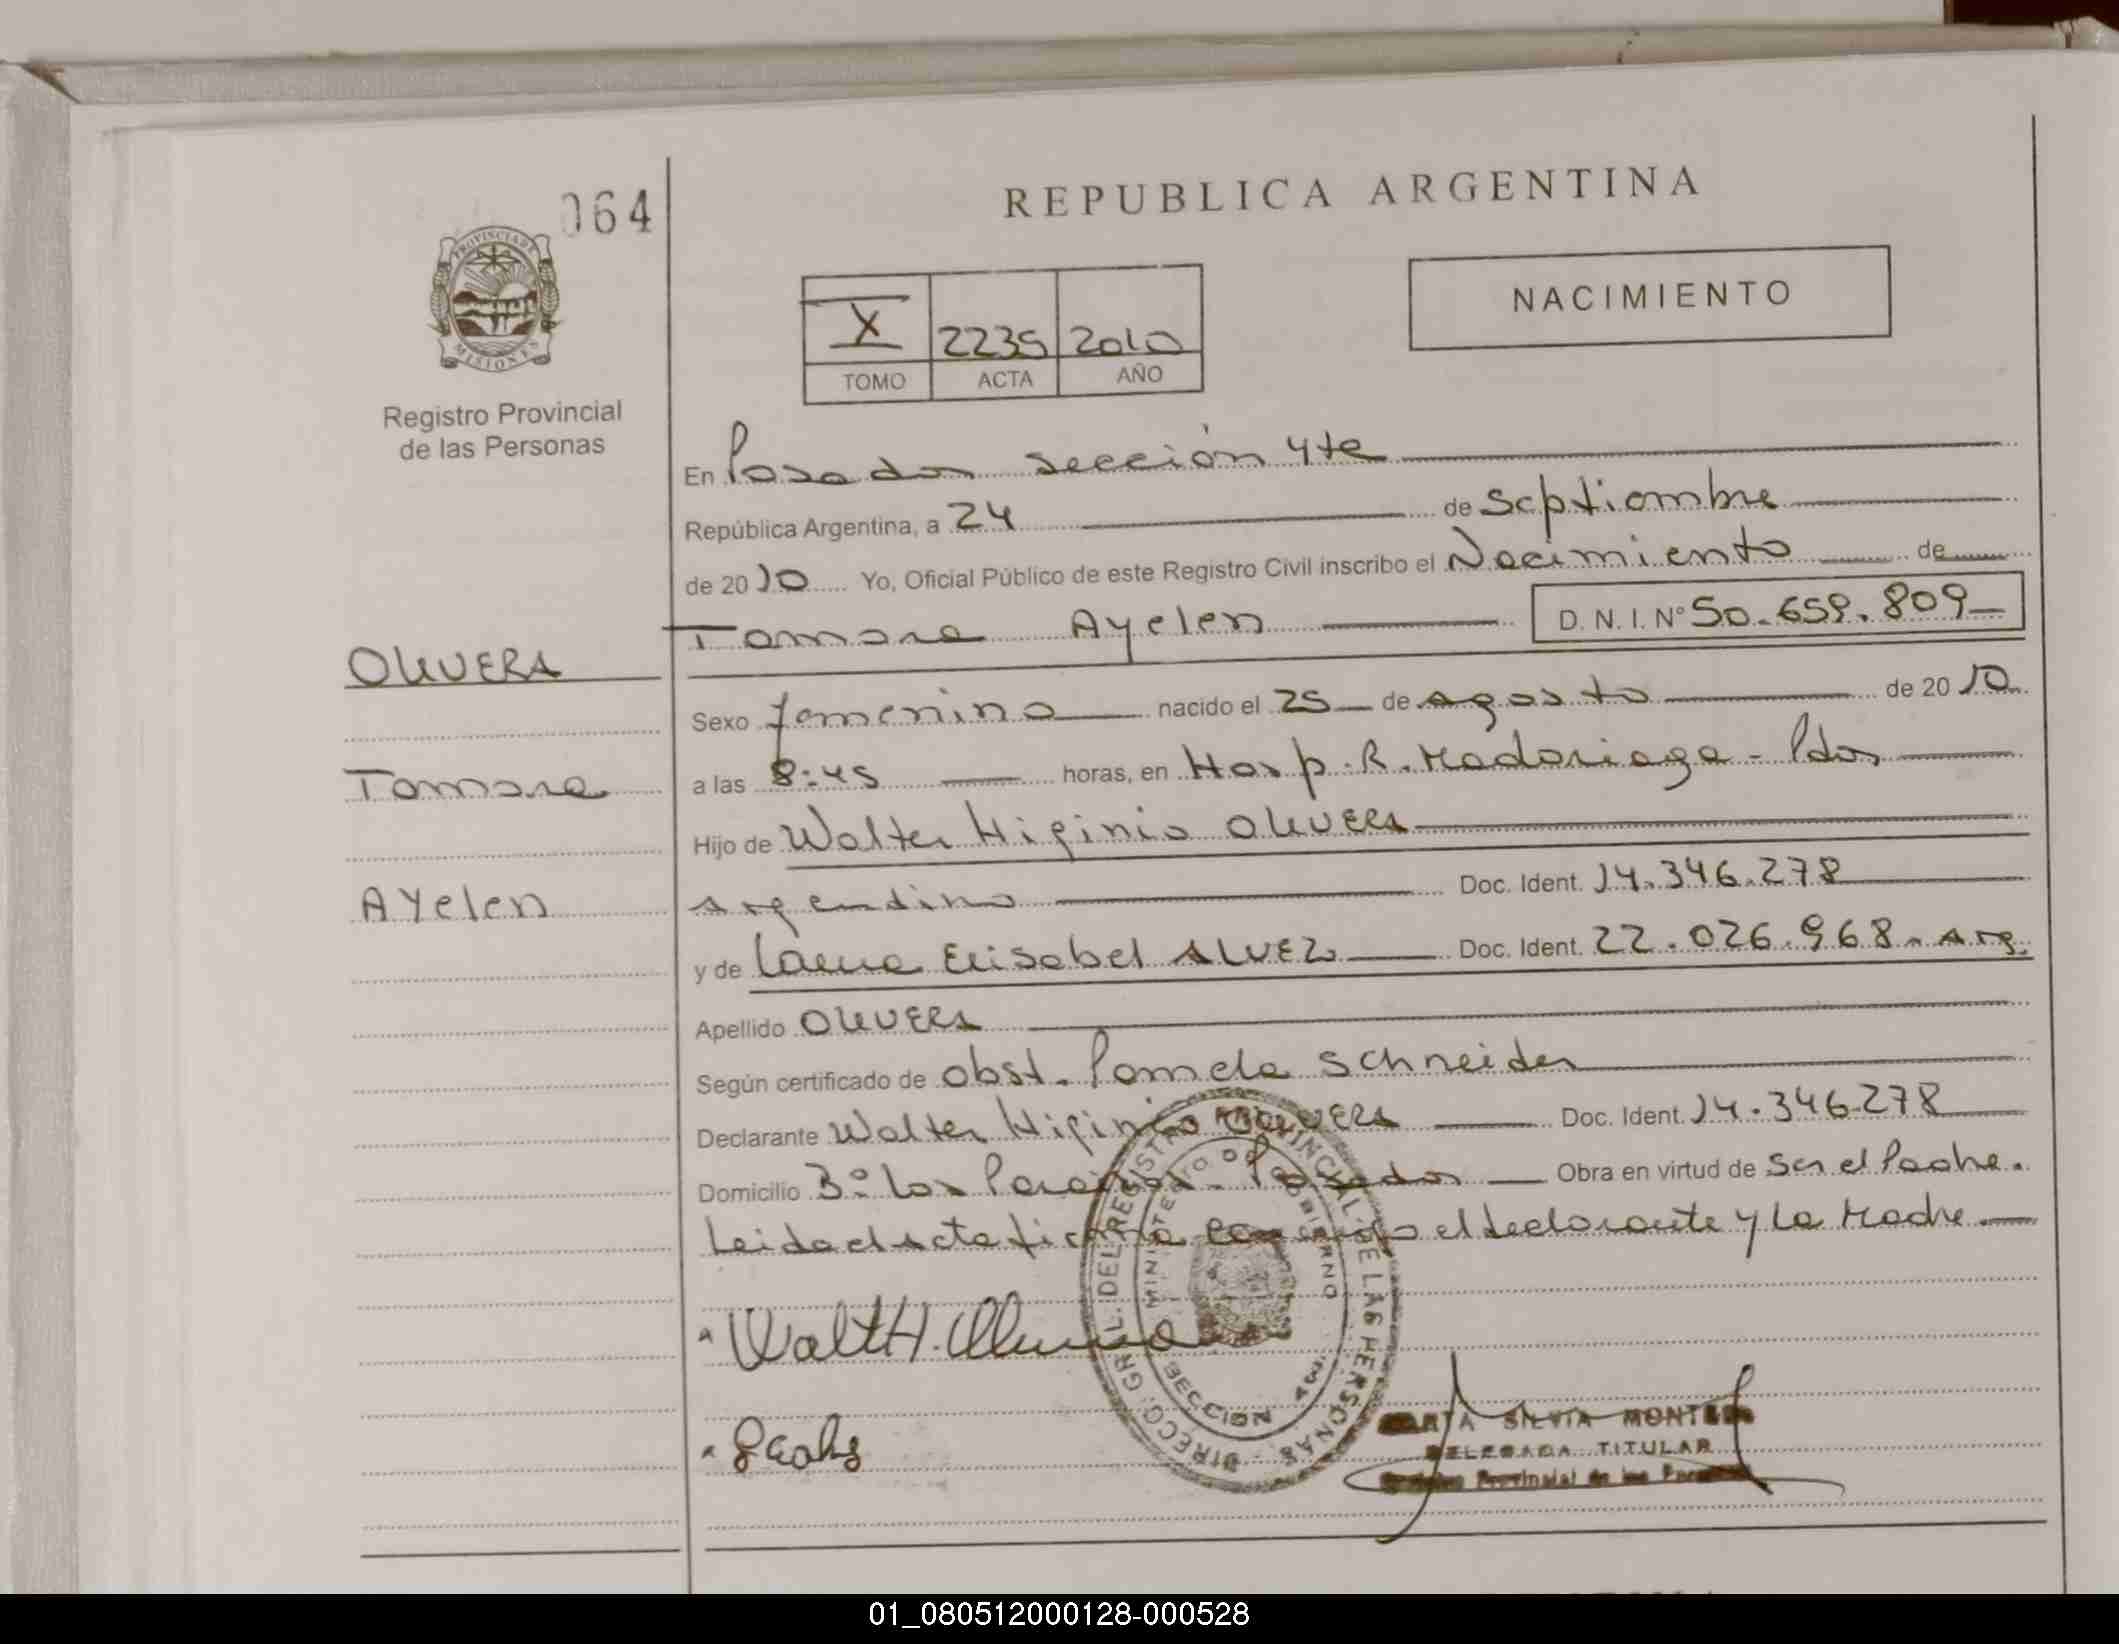 064
PROVINCIA DE
MISIONES
Registro Provincial
de las Personas
REPUBLICA ARGENTINA
NACIMIENTO
X 2235 2010
TOMO ACTA AÑO
En Posadas sección 4ta
República Argentina, a 24 de Septiembre
de 2010 Yo, Oficial Público de este Registro Civil inscribo el Nacimiento de
Tamara Ayelen D. N. I. N° 50.659.809
OLIVERA
Tamara
Ayelen
Sexo femenino nacido el 25 de agosto de 2010
a las 8:45 horas, en Hosp. R. Madariaga - Pdas
Hijo de Walter Higinio OLIVERA
argentino Doc. Ident. 14.346.278
y de Laura Elisabel ALVEZ Doc. Ident. 22.026.968 - Arg.
Apellido OLIVERA
Según certificado de obst. Pamela Schneider
Declarante Walter Higinio OLIVERA Doc. Ident. 14.346.278
Domicilio B° Los Paraísos - Posadas Obra en virtud de ser el Padre.
Leida el acta firma conmigo el declarante y la Madre
Walt H. Olivera
DIRECC. GRL. DEL REGISTRO PROVINCIAL DE LAS PERSONAS
MINISTERIO DE GOBIERNO
SECCION 4ta.
MARTA SILVIA MONTERO
DELEGADA TITULAR
Provincial de las
01_080512000128-000528